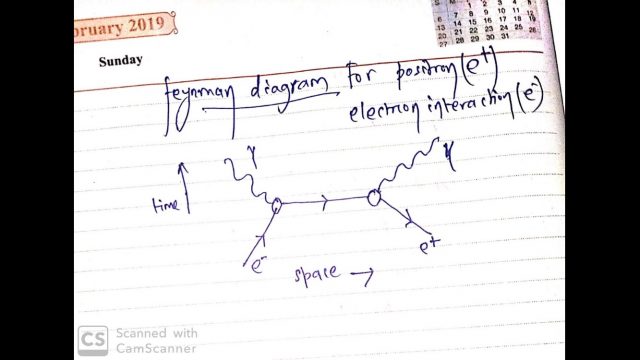 bruary 2019
Sunday
S M 1 2 3 4 5
6 7 8 9 10 11 12
13 14 15 16 17 18 19
20 21 22 23 24 25 26
27 28 29 30 31
feynman diagram for positron (e+)
electron interaction (e-)
γ
γ
time
e-
e+
space →
CS Scanned with
CamScanner